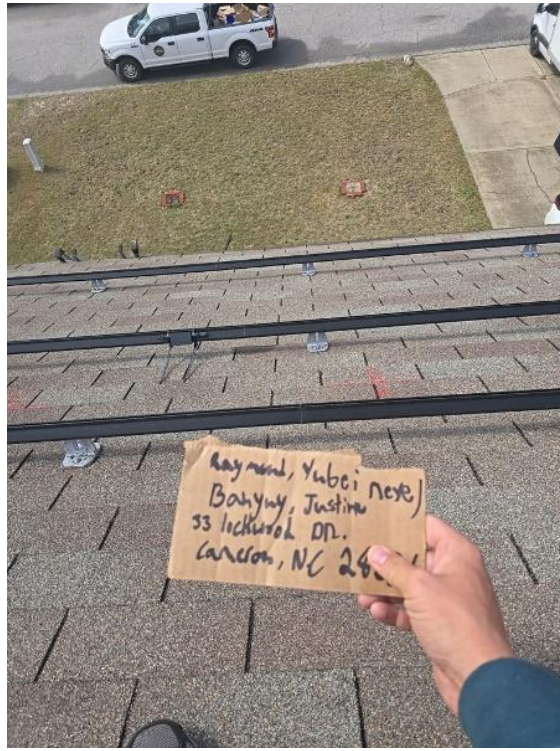 Raymond, Yubei neye)
Banyuy, Justine
33 lockwood DR.
Cameron, NC